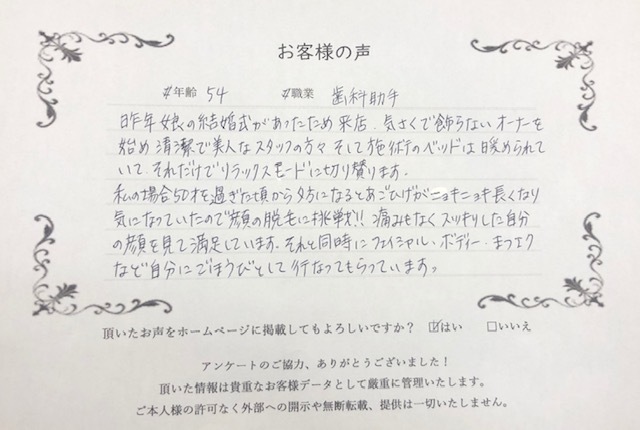 お客様の声
年齢 54 職業 歯科助手
昨年娘の結婚式があったため来店。気さくで飾らないオーナーを
始め清潔で美人なスタッフの方々そして施術のベッドは暖められて
いて、それだけでリラックスモードに切り替ります。
私の場合50才を過ぎた頃から夕方になるとあごひげがニョキニョキ長くなり
気になっていたので顔の脱毛に挑戦!! 痛みもなくスッキリした自分
の顔を見て満足しています。それと同時にフェイシャル、ボディー、まつエク
など自分にごほうびとして行なってもらっています。
頂いたお声をホームページに掲載してもよろしいですか? ☑はい □いいえ
アンケートのご協力、ありがとうございました!
頂いた情報は貴重なお客様データとして厳重に管理いたします。
ご本人様の許可なく外部への開示や無断転載、提供は一切いたしません。